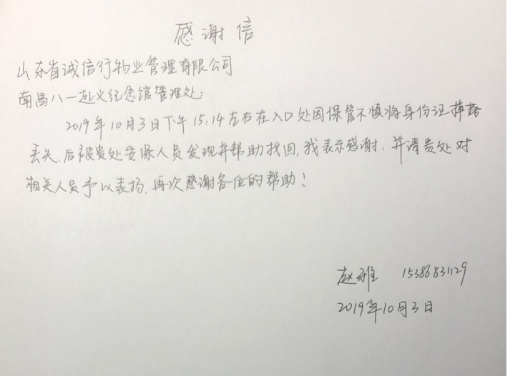 感谢信
山东省诚信行物业管理有限公司
南昌八一起义纪念馆管理处:
2019年10月3日下午15:14左右在入口处因保管不慎将身份证
丢失,后被贵处安保人员发现并帮助找回,我表示感谢.并请贵处对
相关人员予以表扬,再次感谢各位的帮助!
赵雅 15386831129
2019年10月3日